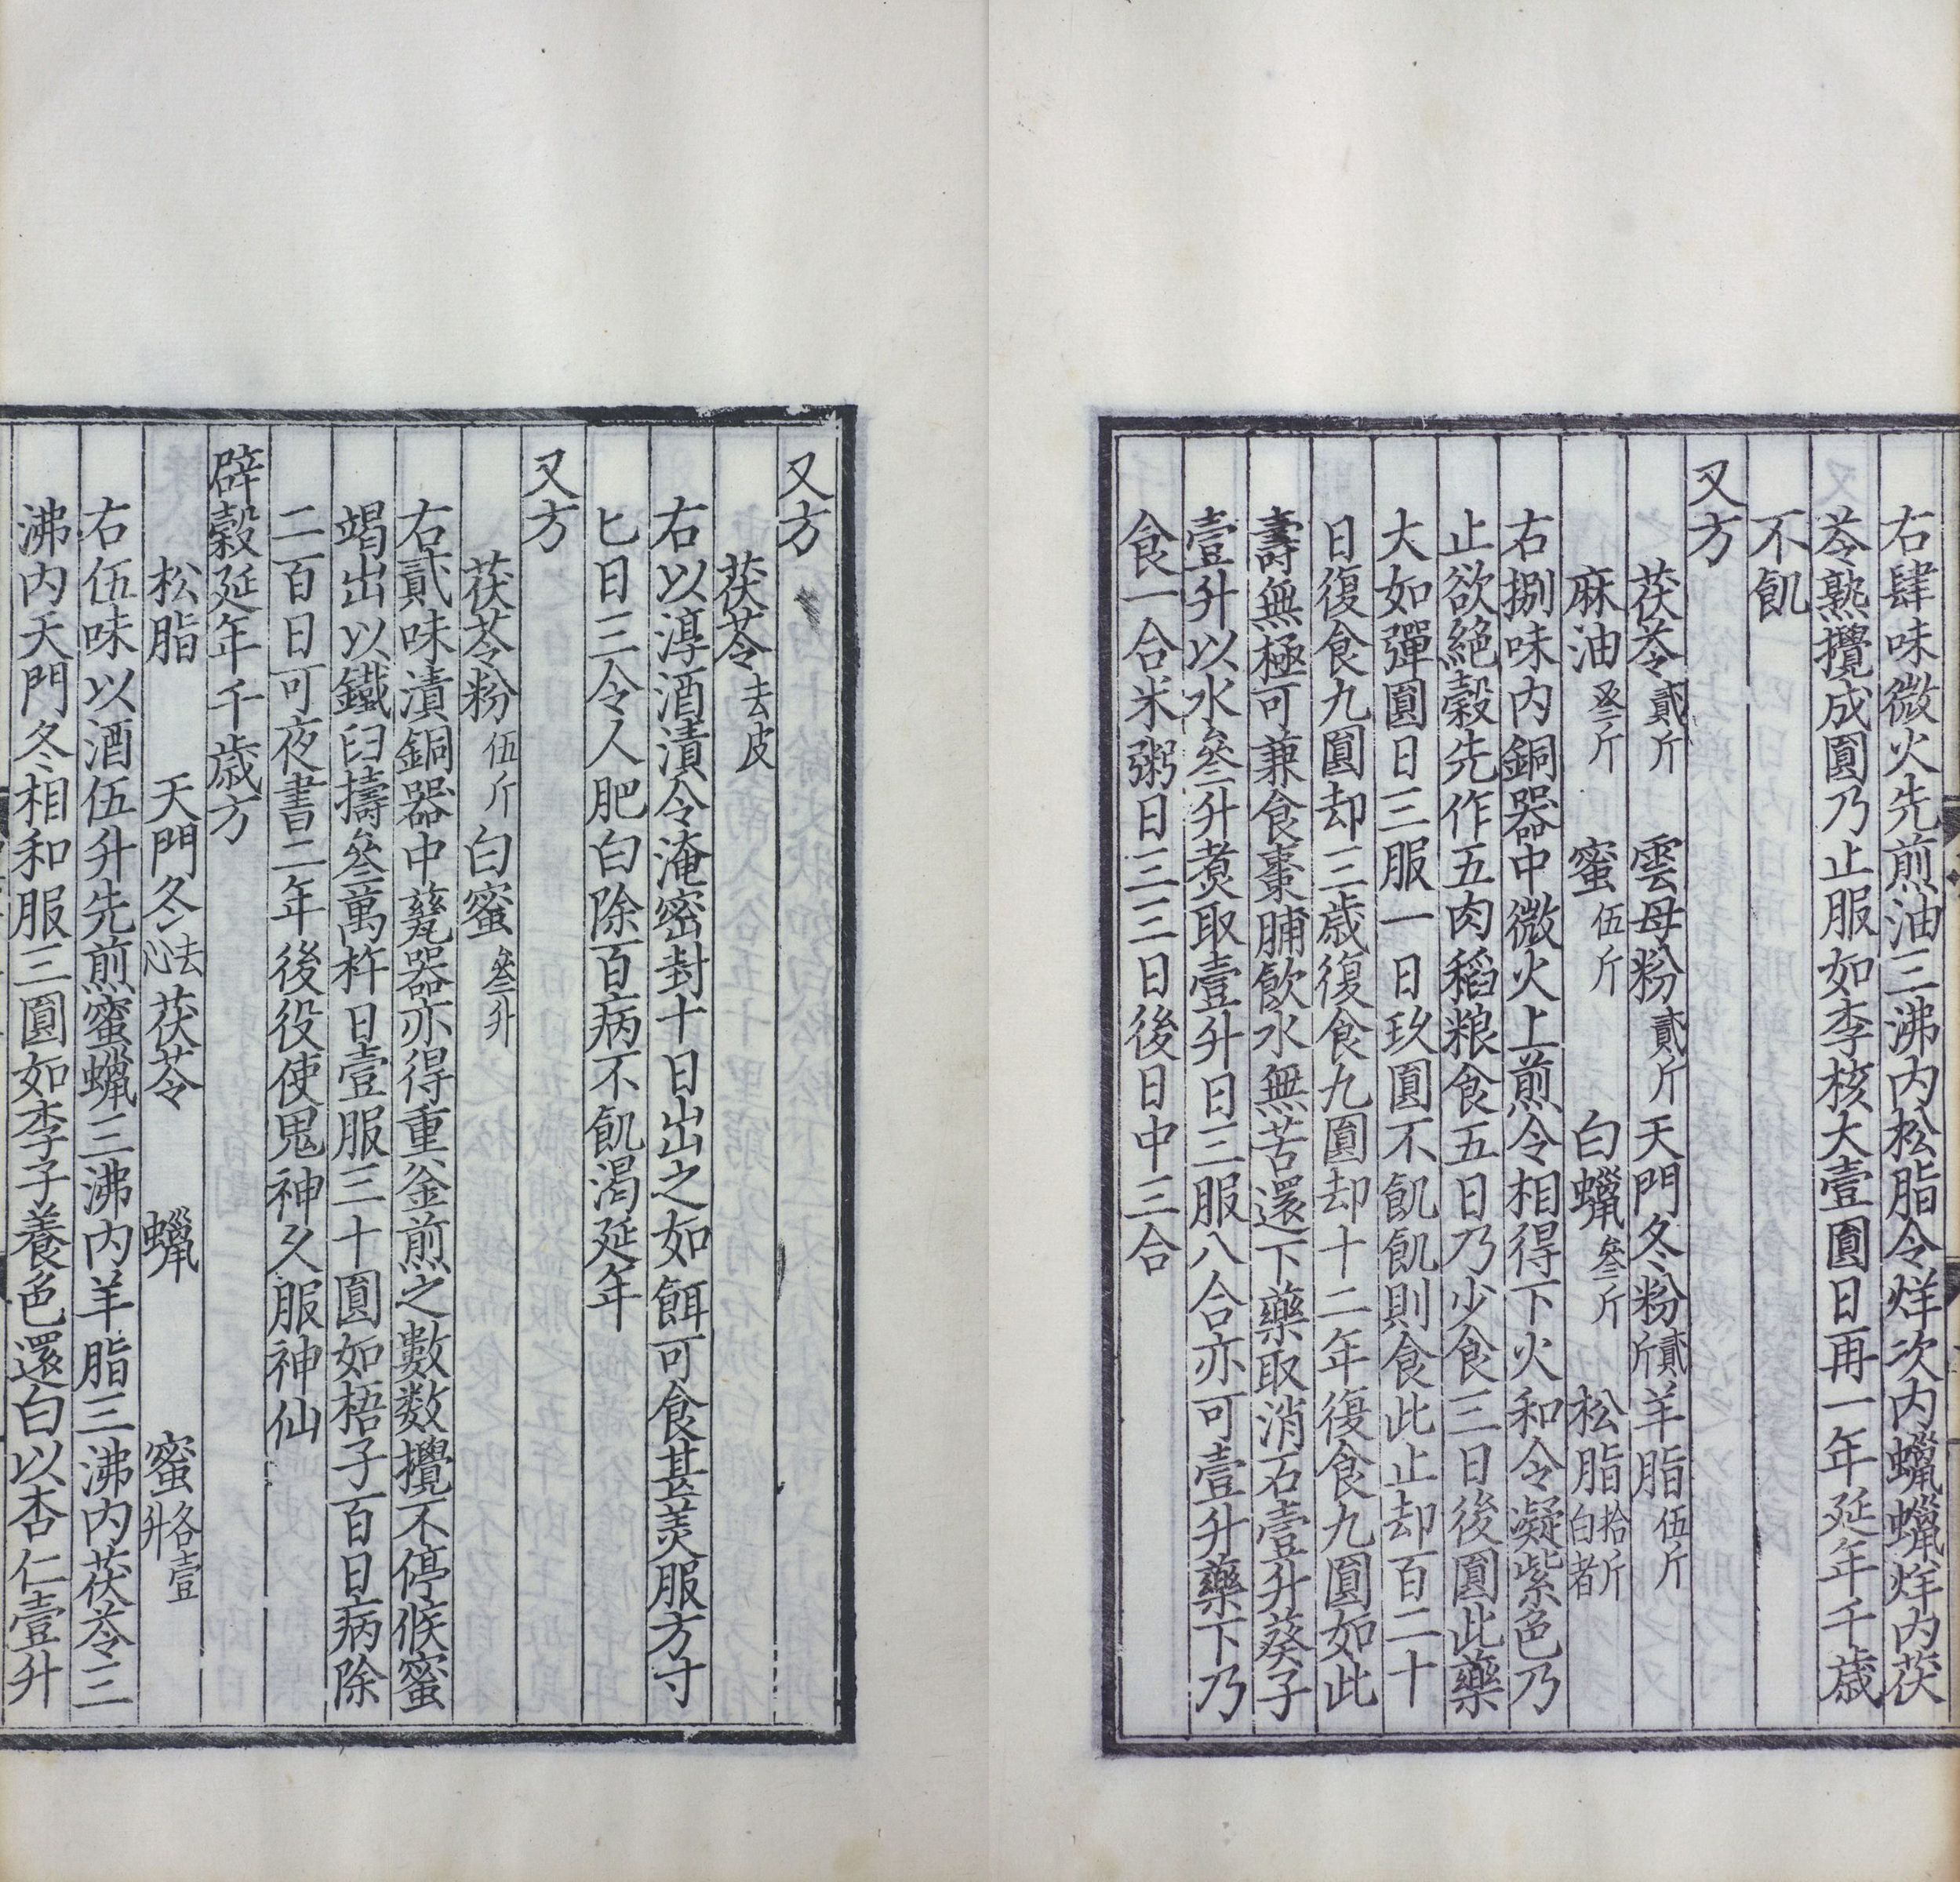 右肆味微火先煎油三沸内松脂令烊次内蠟蠟烊内茯
苓熟攪成圓乃止服如李核大壹圓日再一年延年千歳
不飢
又方
茯苓貳斤　雲母粉貳斤天門冬粉貳斤羊脂伍斤
麻油叄斤　蜜伍斤　白蠟叄斤　松脂拾斤白者
右捌味内銅器中微火上煎令相得下火和令凝紫色乃
止欲絶穀先作五肉稻粮食五日乃少食三日後圓此藥
大如彈圓日三服一日玖圓不飢飢則食此止却百二十
日復食九圓却三歳復食九圓却十二年復食九圓如此
壽無極可兼食棗脯飲水無苦還下藥取消石壹升葵子
壹升以水叄升煮取壹升日三服八合亦可壹升藥下乃
食一合米粥日三三日後日中三合
又方
茯苓去皮
右以淳酒漬令淹密封十日出之如餌可食甚美服方寸
匕日三令人肥白除百病不飢渴延年
又方
茯苓粉伍斤白蜜叄升
右貳味漬銅器中甆器亦得重釜煎之數數攪不停候蜜
竭出以鐵臼擣叄萬杵日壹服三十圓如梧子百日病除
二百日可夜書二年後役使鬼神久服神仙
辟穀延年千歳方
松脂　天門冬去心茯苓　蠟　蜜各壹升
右伍味以酒伍升先煎蜜蠟三沸内羊脂三沸内茯苓三
沸内天門冬相和服三圓如李子養色還白以杏仁壹升